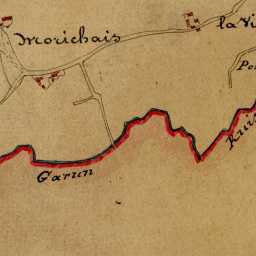 Morichais
la Vi
Po
Garun
Ruis